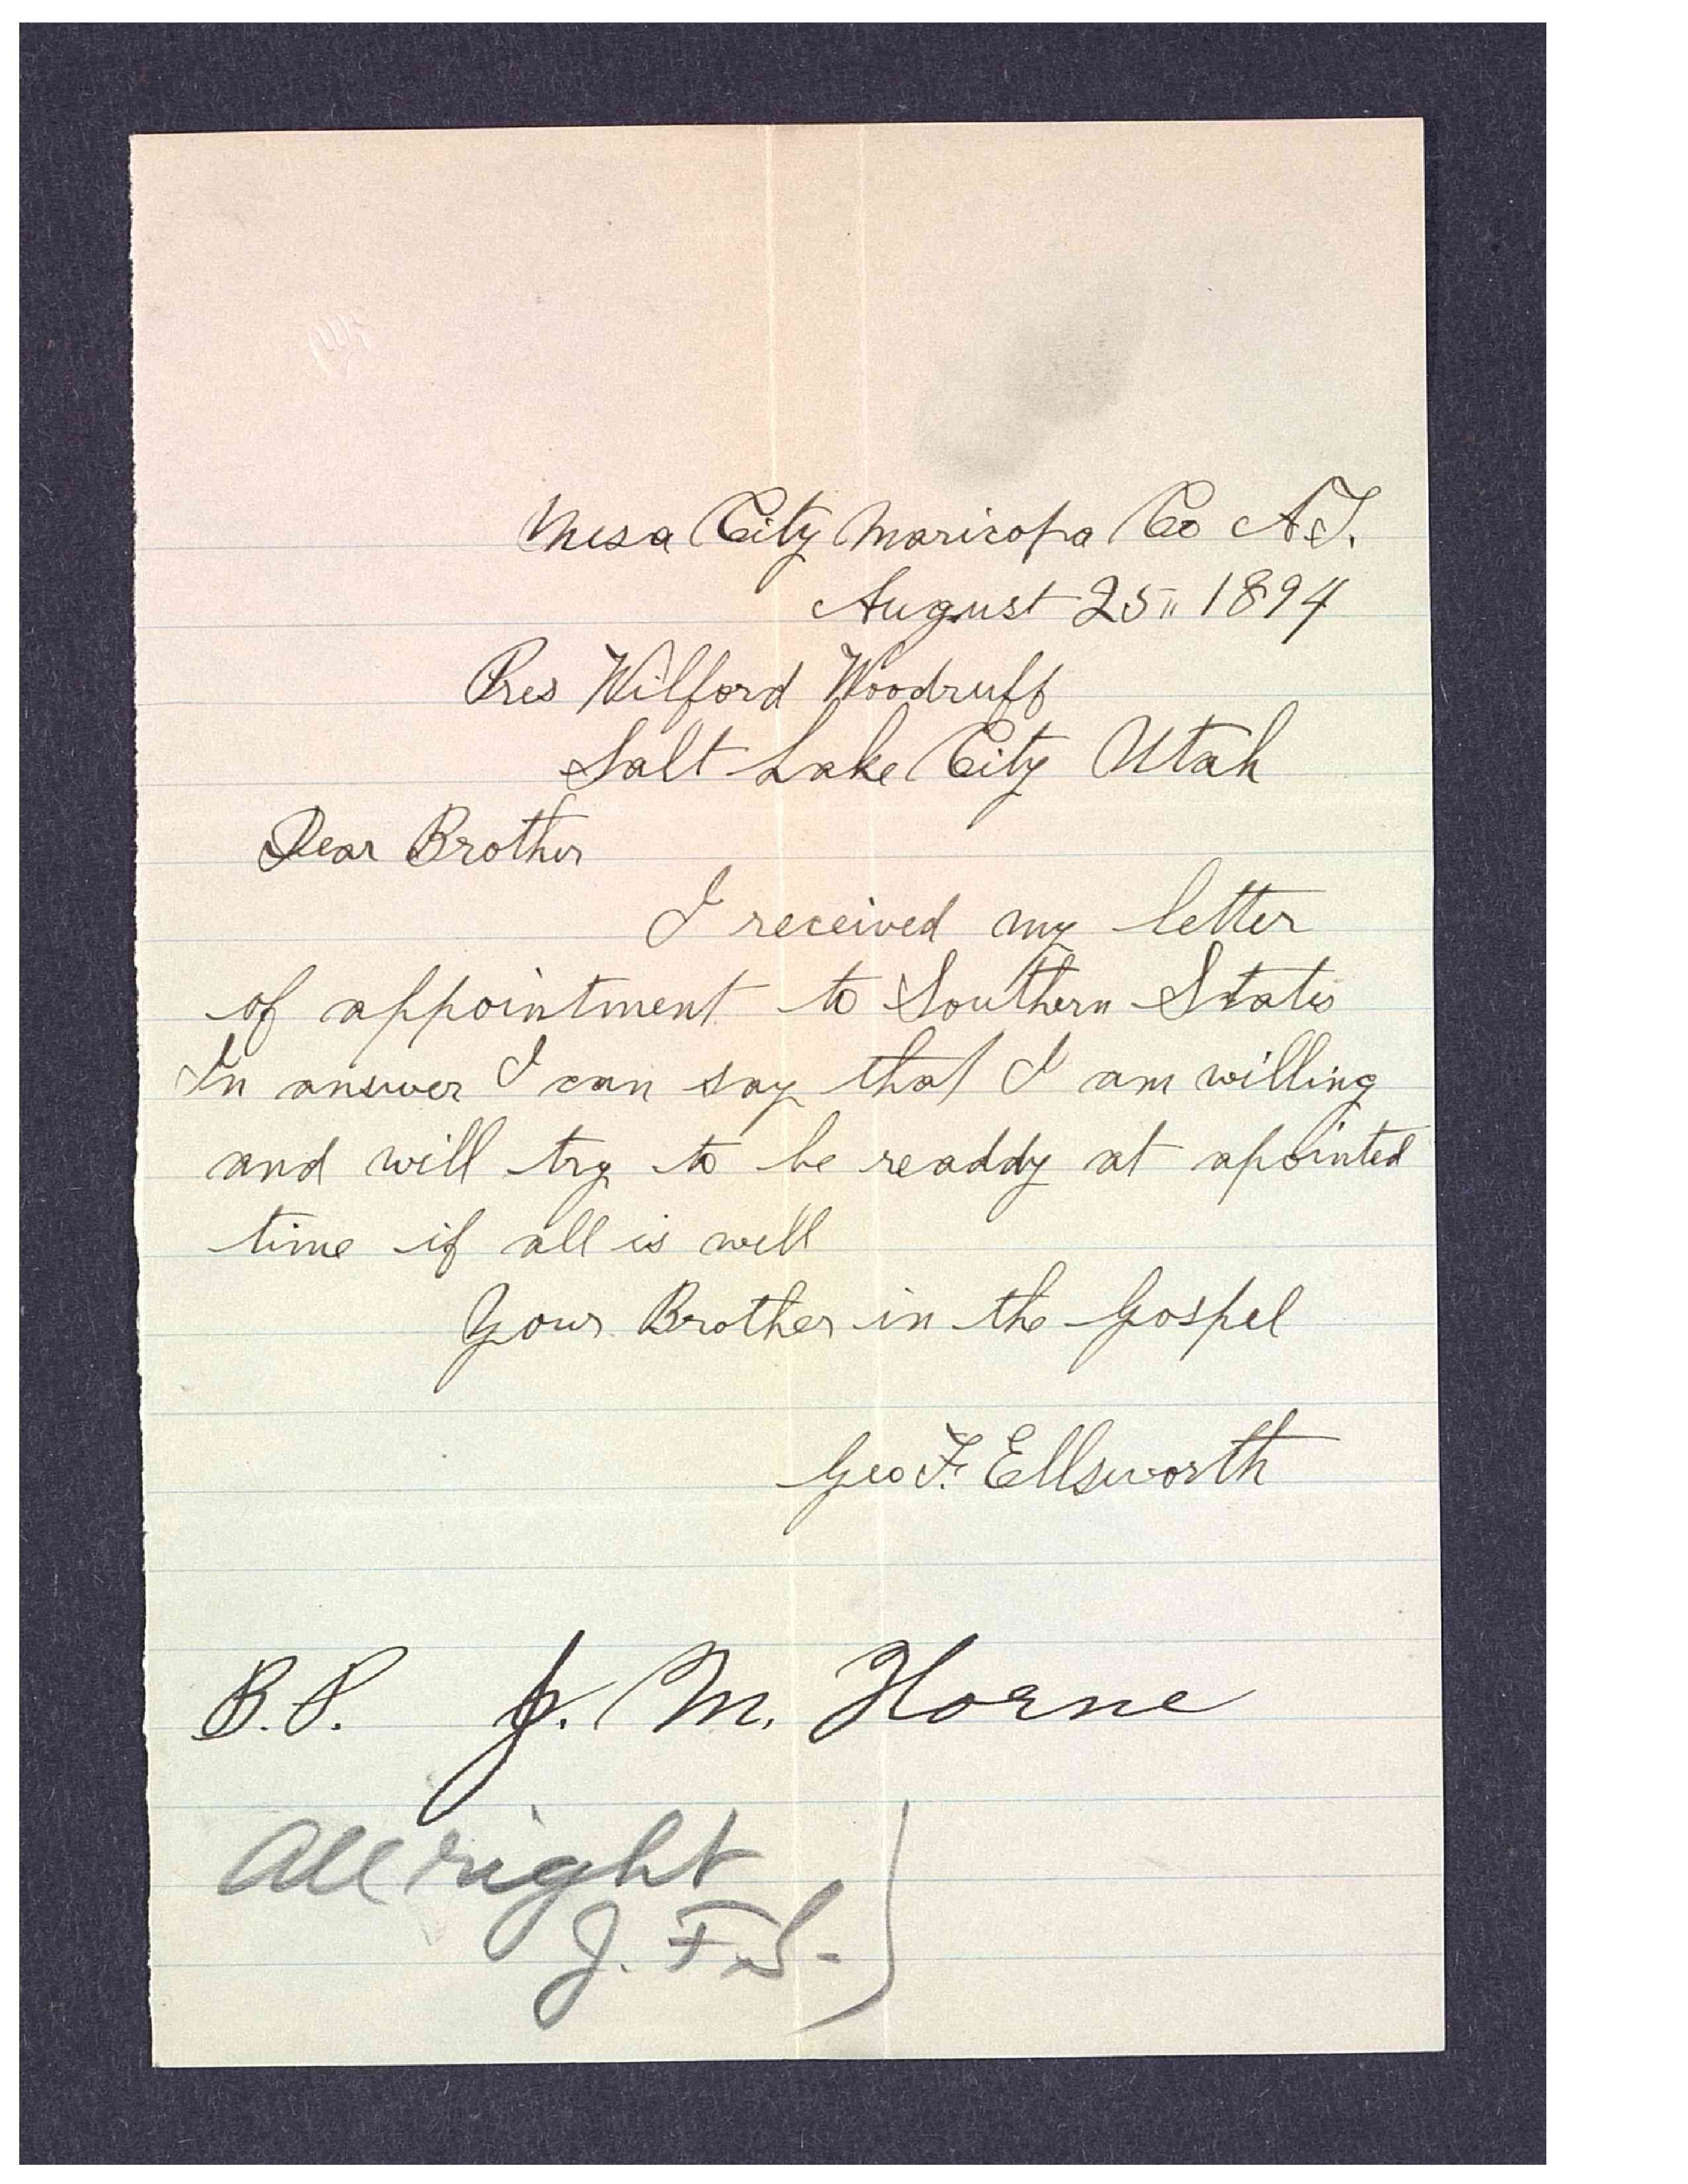 Mesa City Maricopa Co A.T.
August 25" 1894
Pres Wilford Woodruff
Salt Lake City Utah
Dear Brother
I received my letter
of appointment to Southern States
In answer I can say that I am willing
and will try to be readdy at apointed
time if all is well
Your Brother in the Gospel
Geo F. Ellsworth
B.P. J. M. Horne
All right
J. F. S.